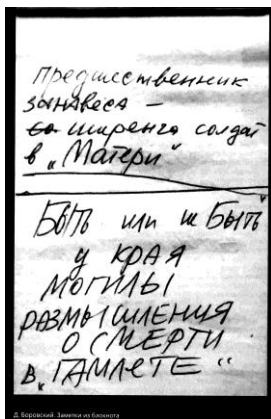 предшественник
занавеса —
ширенга солдат
в „Матери“
Быть или не Быть
у края
могилы
размышления
о смерти
в „Гамлете“
Д. Боровский. Заметки из блокнота